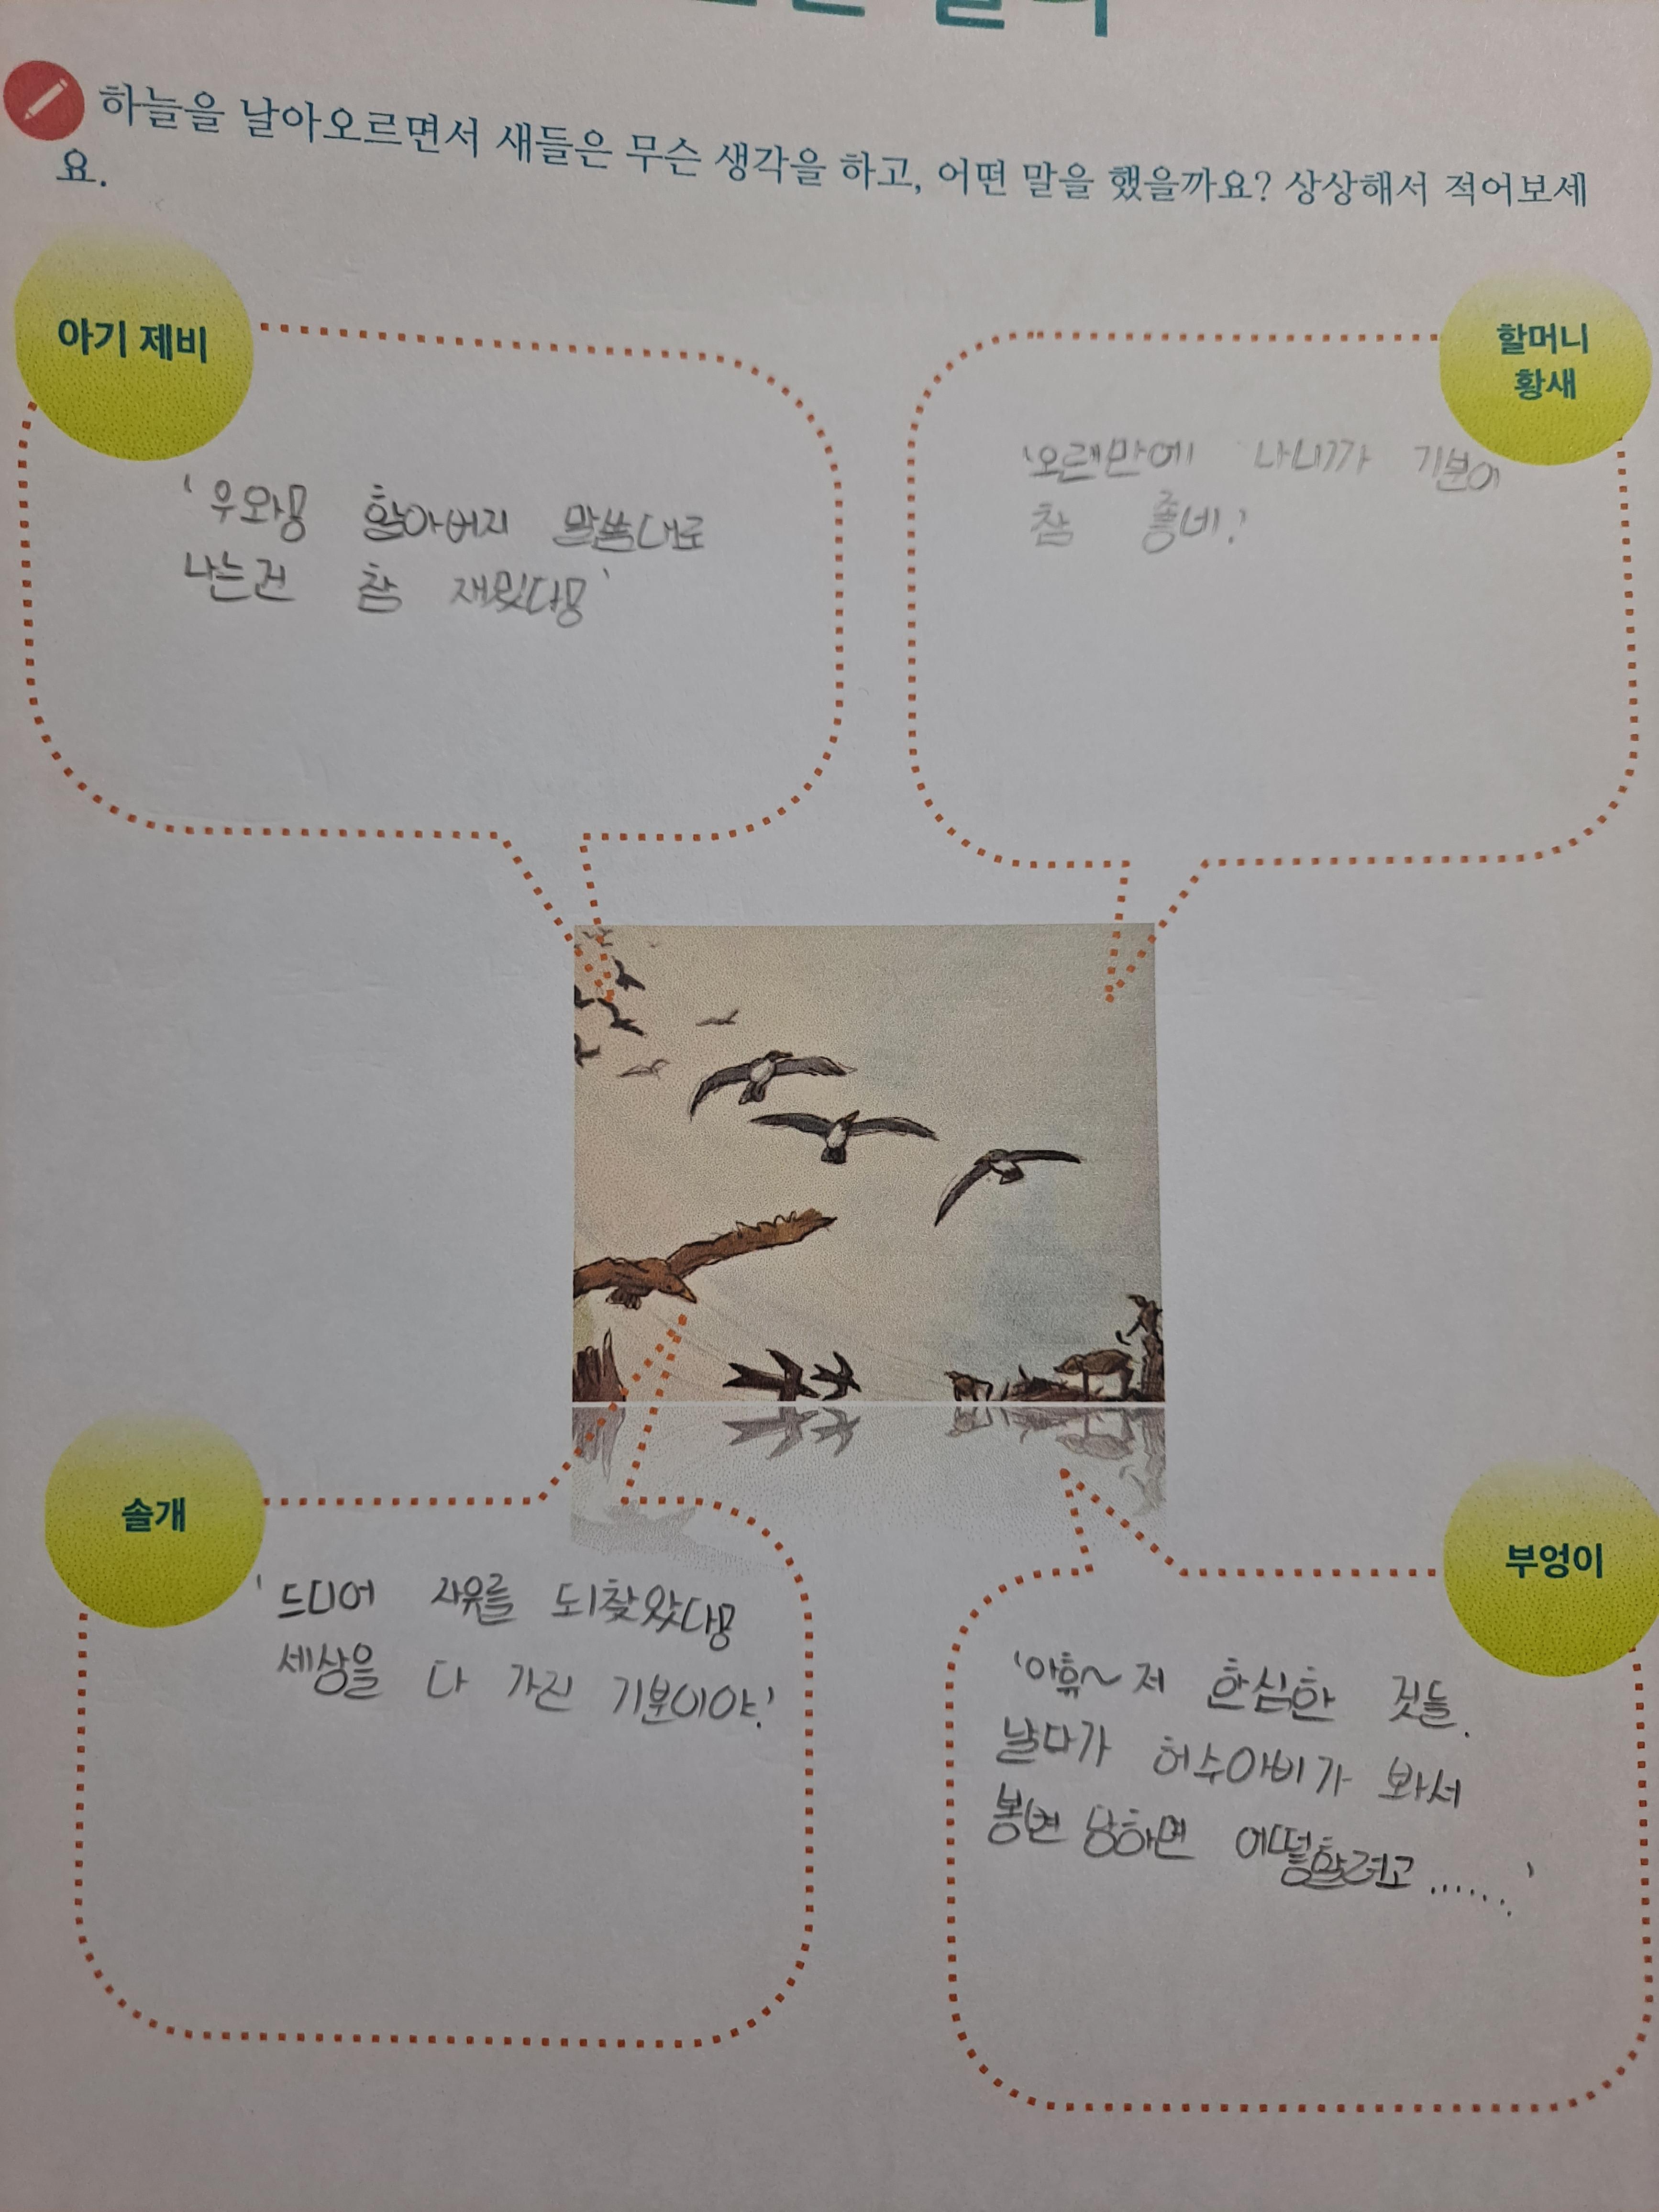 하늘을 날아오르면서 새들은 무슨 생각을 하고, 어떤 말을 했을까요? 상상해서 적어보세
요.
아기 제비
'우와! 할아버지 말씀대로
나는건 참 재밌다!'
할머니
황새
'오랜만에 나니까 기분이
참 좋네.'
솔개
'드디어 자유를 되찾았다!
세상을 다 가진 기분이야.'
부엉이
'아휴~ 저 한심한 것들.
날다가 허수아비가 봐서
봉변 당하면 어떻할려고.......'